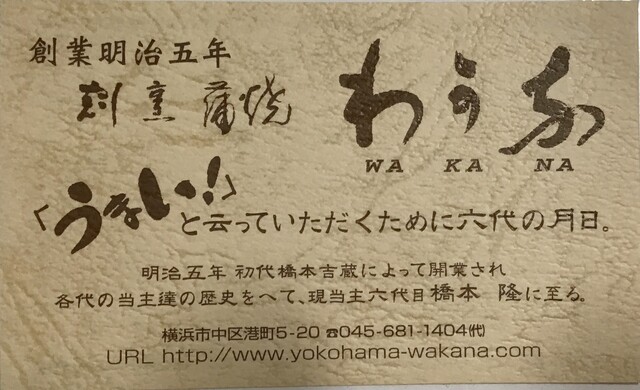 創業明治五年
割烹 蒲焼
わかな
WA KA NA
「うまい!」
と云っていただくために六代の月日。
明治五年 初代橋本吉蔵によって開業され
各代の当主達の歴史をへて、現当主六代目橋本 隆に至る。
横浜市中区港町5-20 ☎045-681-1404㈹
URL http://www.yokohama-wakana.com